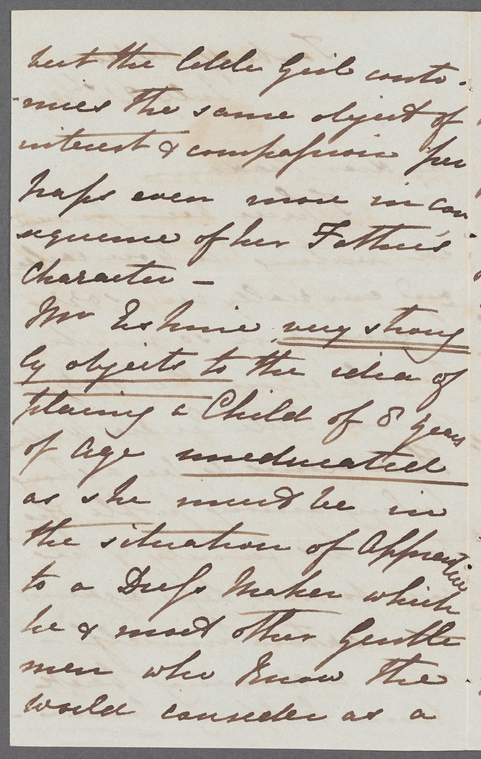 but the little Girl conti-
-nues the same object of
interest & compassion per
haps even more in con
sequence of her Father's
Character –
Mr Erskine very strong
ly objects to the idea of
placing a Child of 8 years
of age uneducated
as she must be in
the situation of Apprentice
to a Dress Maker which
he & most other Gentle
men who know the
world consider as a